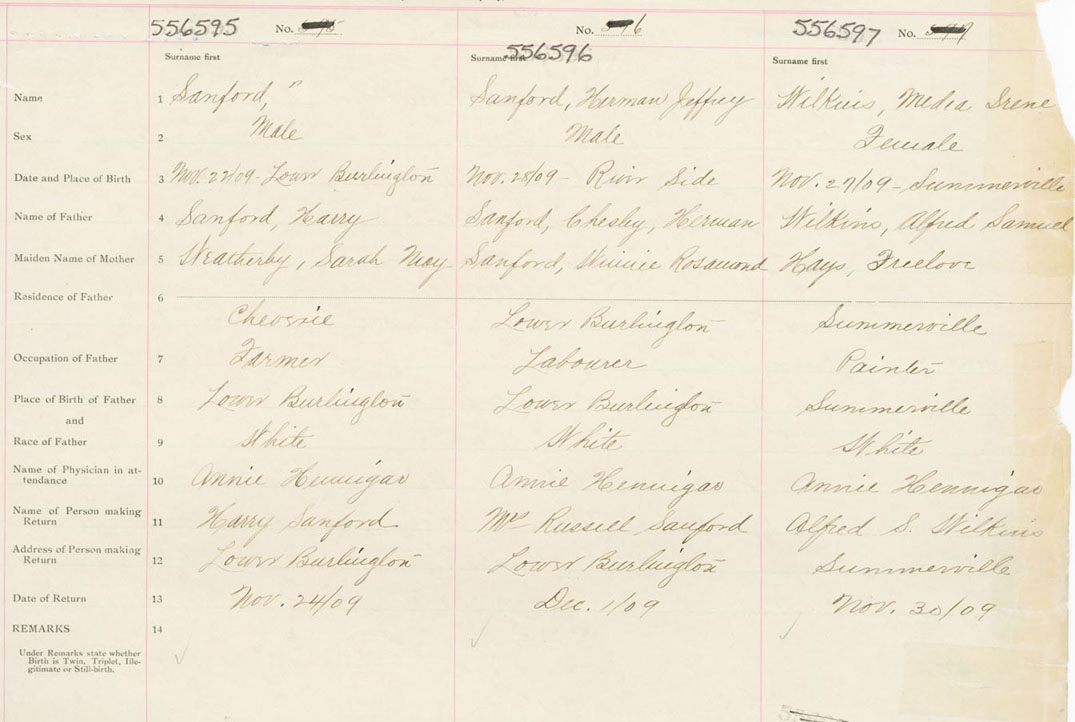 556595 No. 556596 No. 556597 No.
Surname first Surname first Surname first
Name 1 Sanford, " Sanford, Herman Jeffrey Wilkins, Media Irene
Sex 2 Male Male Female
Date and Place of Birth 3 Nov. 22/09 - Lower Burlington Nov. 28/09 - River Side Nov. 27/09 - Summerville
Name of Father 4 Sanford, Harry Sanford, Chesley, Herman Wilkins, Alfred Samuel
Maiden Name of Mother 5 Weatherby, Sarah May Sanford, Winnie Rosamond Hays, Freelove
Residence of Father 6 Cheverie Lower Burlington Summerville
Occupation of Father 7 Farmer Labourer Painter
Place of Birth of Father 8 Lower Burlington Lower Burlington Summerville
and
Race of Father 9 White White White
Name of Physician in at-
tendance 10 Annie Hennigar Annie Hennigar Annie Hennigar
Name of Person making
Return 11 Harry Sanford Mrs Russell Sanford Alfred S. Wilkins
Address of Person making
Return 12 Lower Burlington Lower Burlington Summerville
Date of Return 13 Nov. 24/09 Dec. 1/09 Nov. 30/09
REMARKS 14
Under Remarks state whether
Birth is Twin, Triplet, Ille-
gitimate or Still-birth.